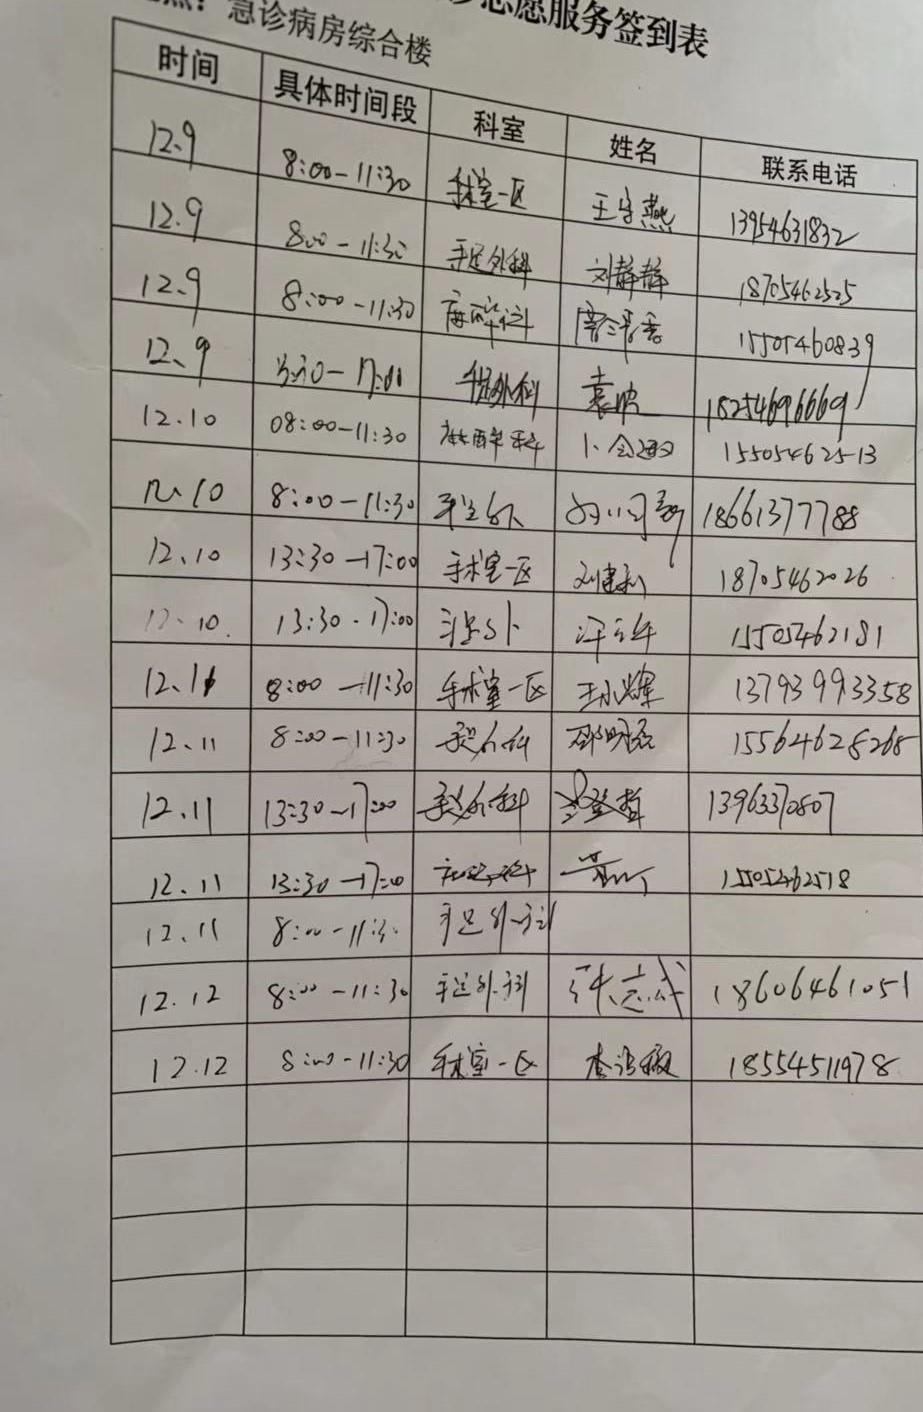 志愿服务签到表
急诊病房综合楼
时间 具体时间段 科室 姓名 联系电话
12.9 8:00-11:30 手术室一区 13954631832
12.9 8:00-11:30 手足外科 刘静静 18705462525
12.9 8:00-11:30 麻醉科 15505460839
12.9 手足外科 18254696669
12.10 08:00-11:30 麻醉科 15505462513
12.10 8:00-11:30 手足外 18661377788
12.10 13:30-17:00 手术室一区 18705462026
12.10. 13:30-17:00 手足外 15505462181
12.11 8:00-11:30 手术室一区 王永辉 13793993358
12.11 8:00-11:30 手足外科 15564628268
12.11 13:30-17:00 手足外科 13963370807
12.11 13:30-17:00 15505462518
12.11 8:00-11:30 手足外科
12.12 8:00-11:30 手足外科 张志斌 18606461051
12.12 8:00-11:30 手术室一区 18554511978